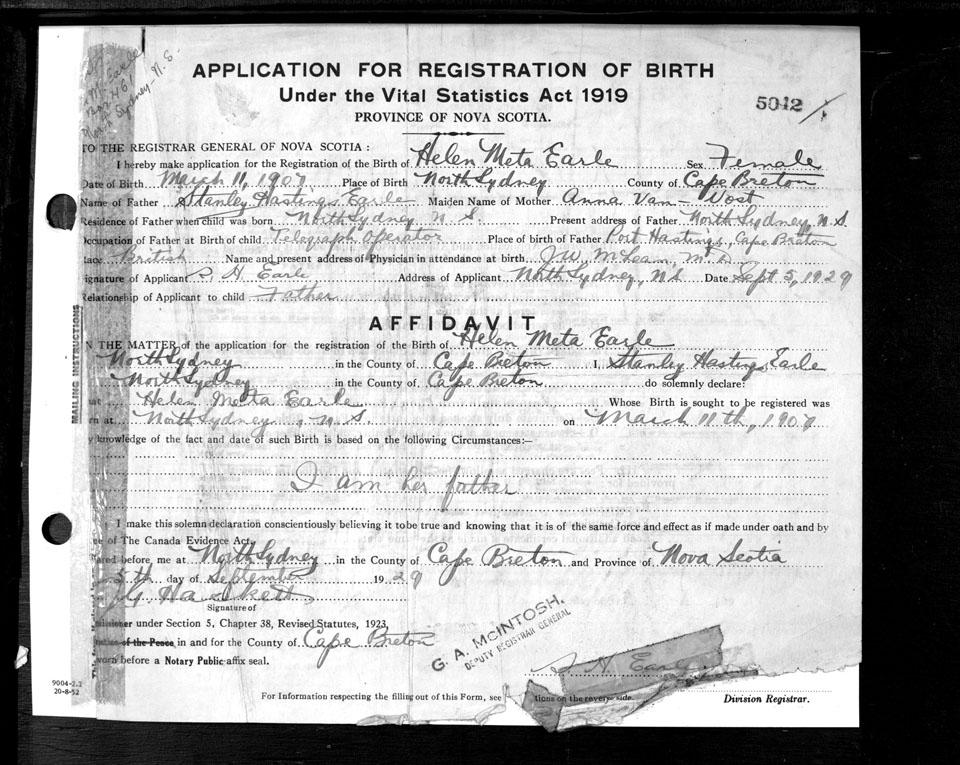 M. Earle
Box 461
North Sydney - N. S.
APPLICATION FOR REGISTRATION OF BIRTH
Under the Vital Statistics Act 1919
PROVINCE OF NOVA SCOTIA.
5042
TO THE REGISTRAR GENERAL OF NOVA SCOTIA :
I hereby make application for the Registration of the Birth of Helen Meta Earle Sex Female
Date of Birth March 11, 1907. Place of Birth North Sydney County of Cape Breton
Name of Father Stanley Hastings Earle Maiden Name of Mother Anna Van-Wost
Residence of Father when child was born North Sydney N. S. Present address of Father North Sydney, N. S.
Occupation of Father at Birth of child Telegraph Operator Place of birth of Father Port Hastings, Cape Breton
Race British Name and present address of Physician in attendance at birth J. W. McLean, M. D.
Signature of Applicant S. H. Earle Address of Applicant North Sydney, N S Date Sept 5, 1929
Relationship of Applicant to child Father
AFFIDAVIT
N THE MATTER of the application for the registration of the Birth of Helen Meta Earle
North Sydney in the County of Cape Breton I, Stanley Hastings Earle
North Sydney in the County of Cape Breton do solemnly declare:
at Helen Meta Earle Whose Birth is sought to be registered was
rn at North Sydney, N. S. on March 11th, 1907
y knowledge of the fact and date of such Birth is based on the following Circumstances:—
I am her father
I make this solemn declaration conscientiously believing it to be true and knowing that it is of the same force and effect as if made under oath and by
e of The Canada Evidence Act.
ared before me at North Sydney in the County of Cape Breton and Province of Nova Scotia
5th day of September 1929
Hackett
Signature of
issioner under Section 5, Chapter 38, Revised Statutes, 1923,
of the Peace in and for the County of Cape Breton
worn before a Notary Public affix seal.
MAILING INSTRUCTIONS
G. A. MCINTOSH.
DEPUTY REGISTRAR GENERAL
S. H. Earle
9004-2.2
20-8-52
For Information respecting the filling out of this Form, see
tions on the reverse side.
Division Registrar.